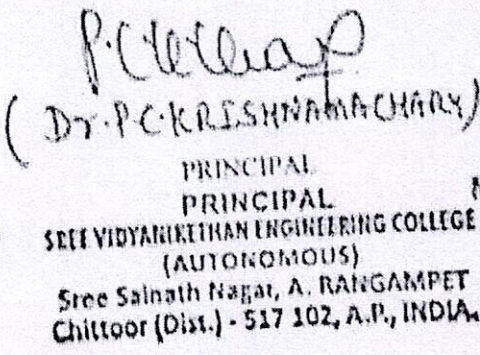 (Dr. P.C. KRISHNAMACHARY)
PRINCIPAL
PRINCIPAL
SREE VIDYANIKETHAN ENGINEERING COLLEGE
(AUTONOMOUS)
Sree Sainath Nagar, A. RANGAMPET
Chittoor (Dist.) - 517 102, A.P., INDIA.